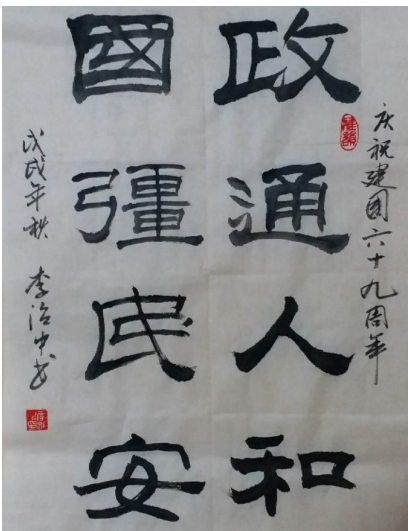 庆祝建国六十九周年
政通人和
國彊民安
戊戌年秋 李治中书